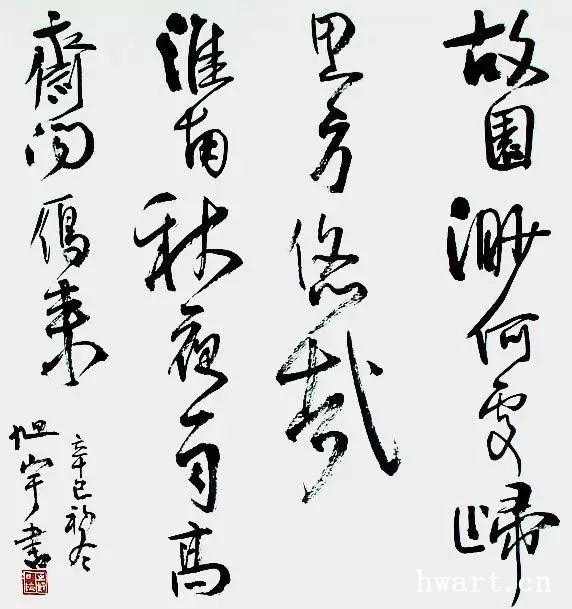 故園渺何處歸
思方悠哉
淮南秋夜雨高
齋聞鴈来
辛巳初冬
旭宇書
hwart.cn